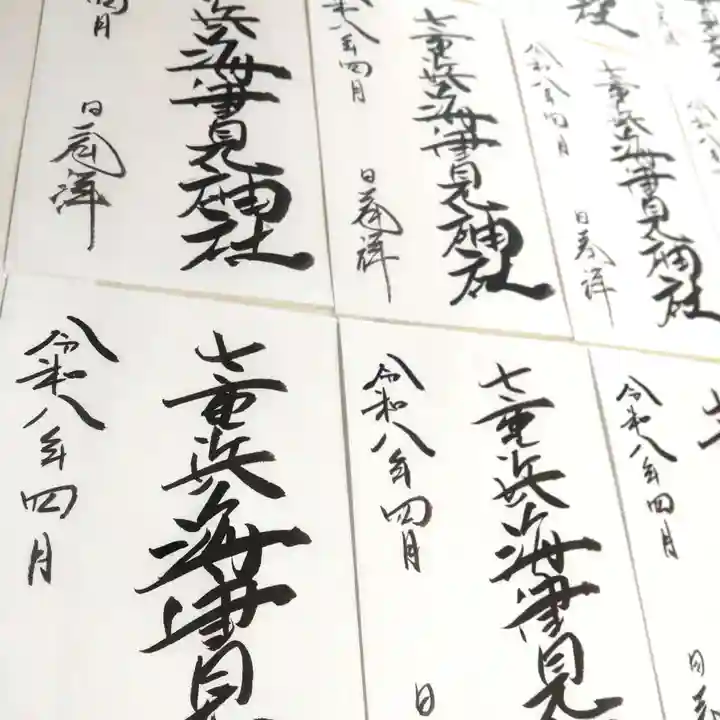 七重浜海津見神社
四月
日
七重浜海津見神社
令和八年四月
日奉拝
七重浜海津見神社
令和八年四月
日奉拝
七重浜海津見
令和八年四月
七重浜海津見
令和八年四月
日
令和八年四月
日